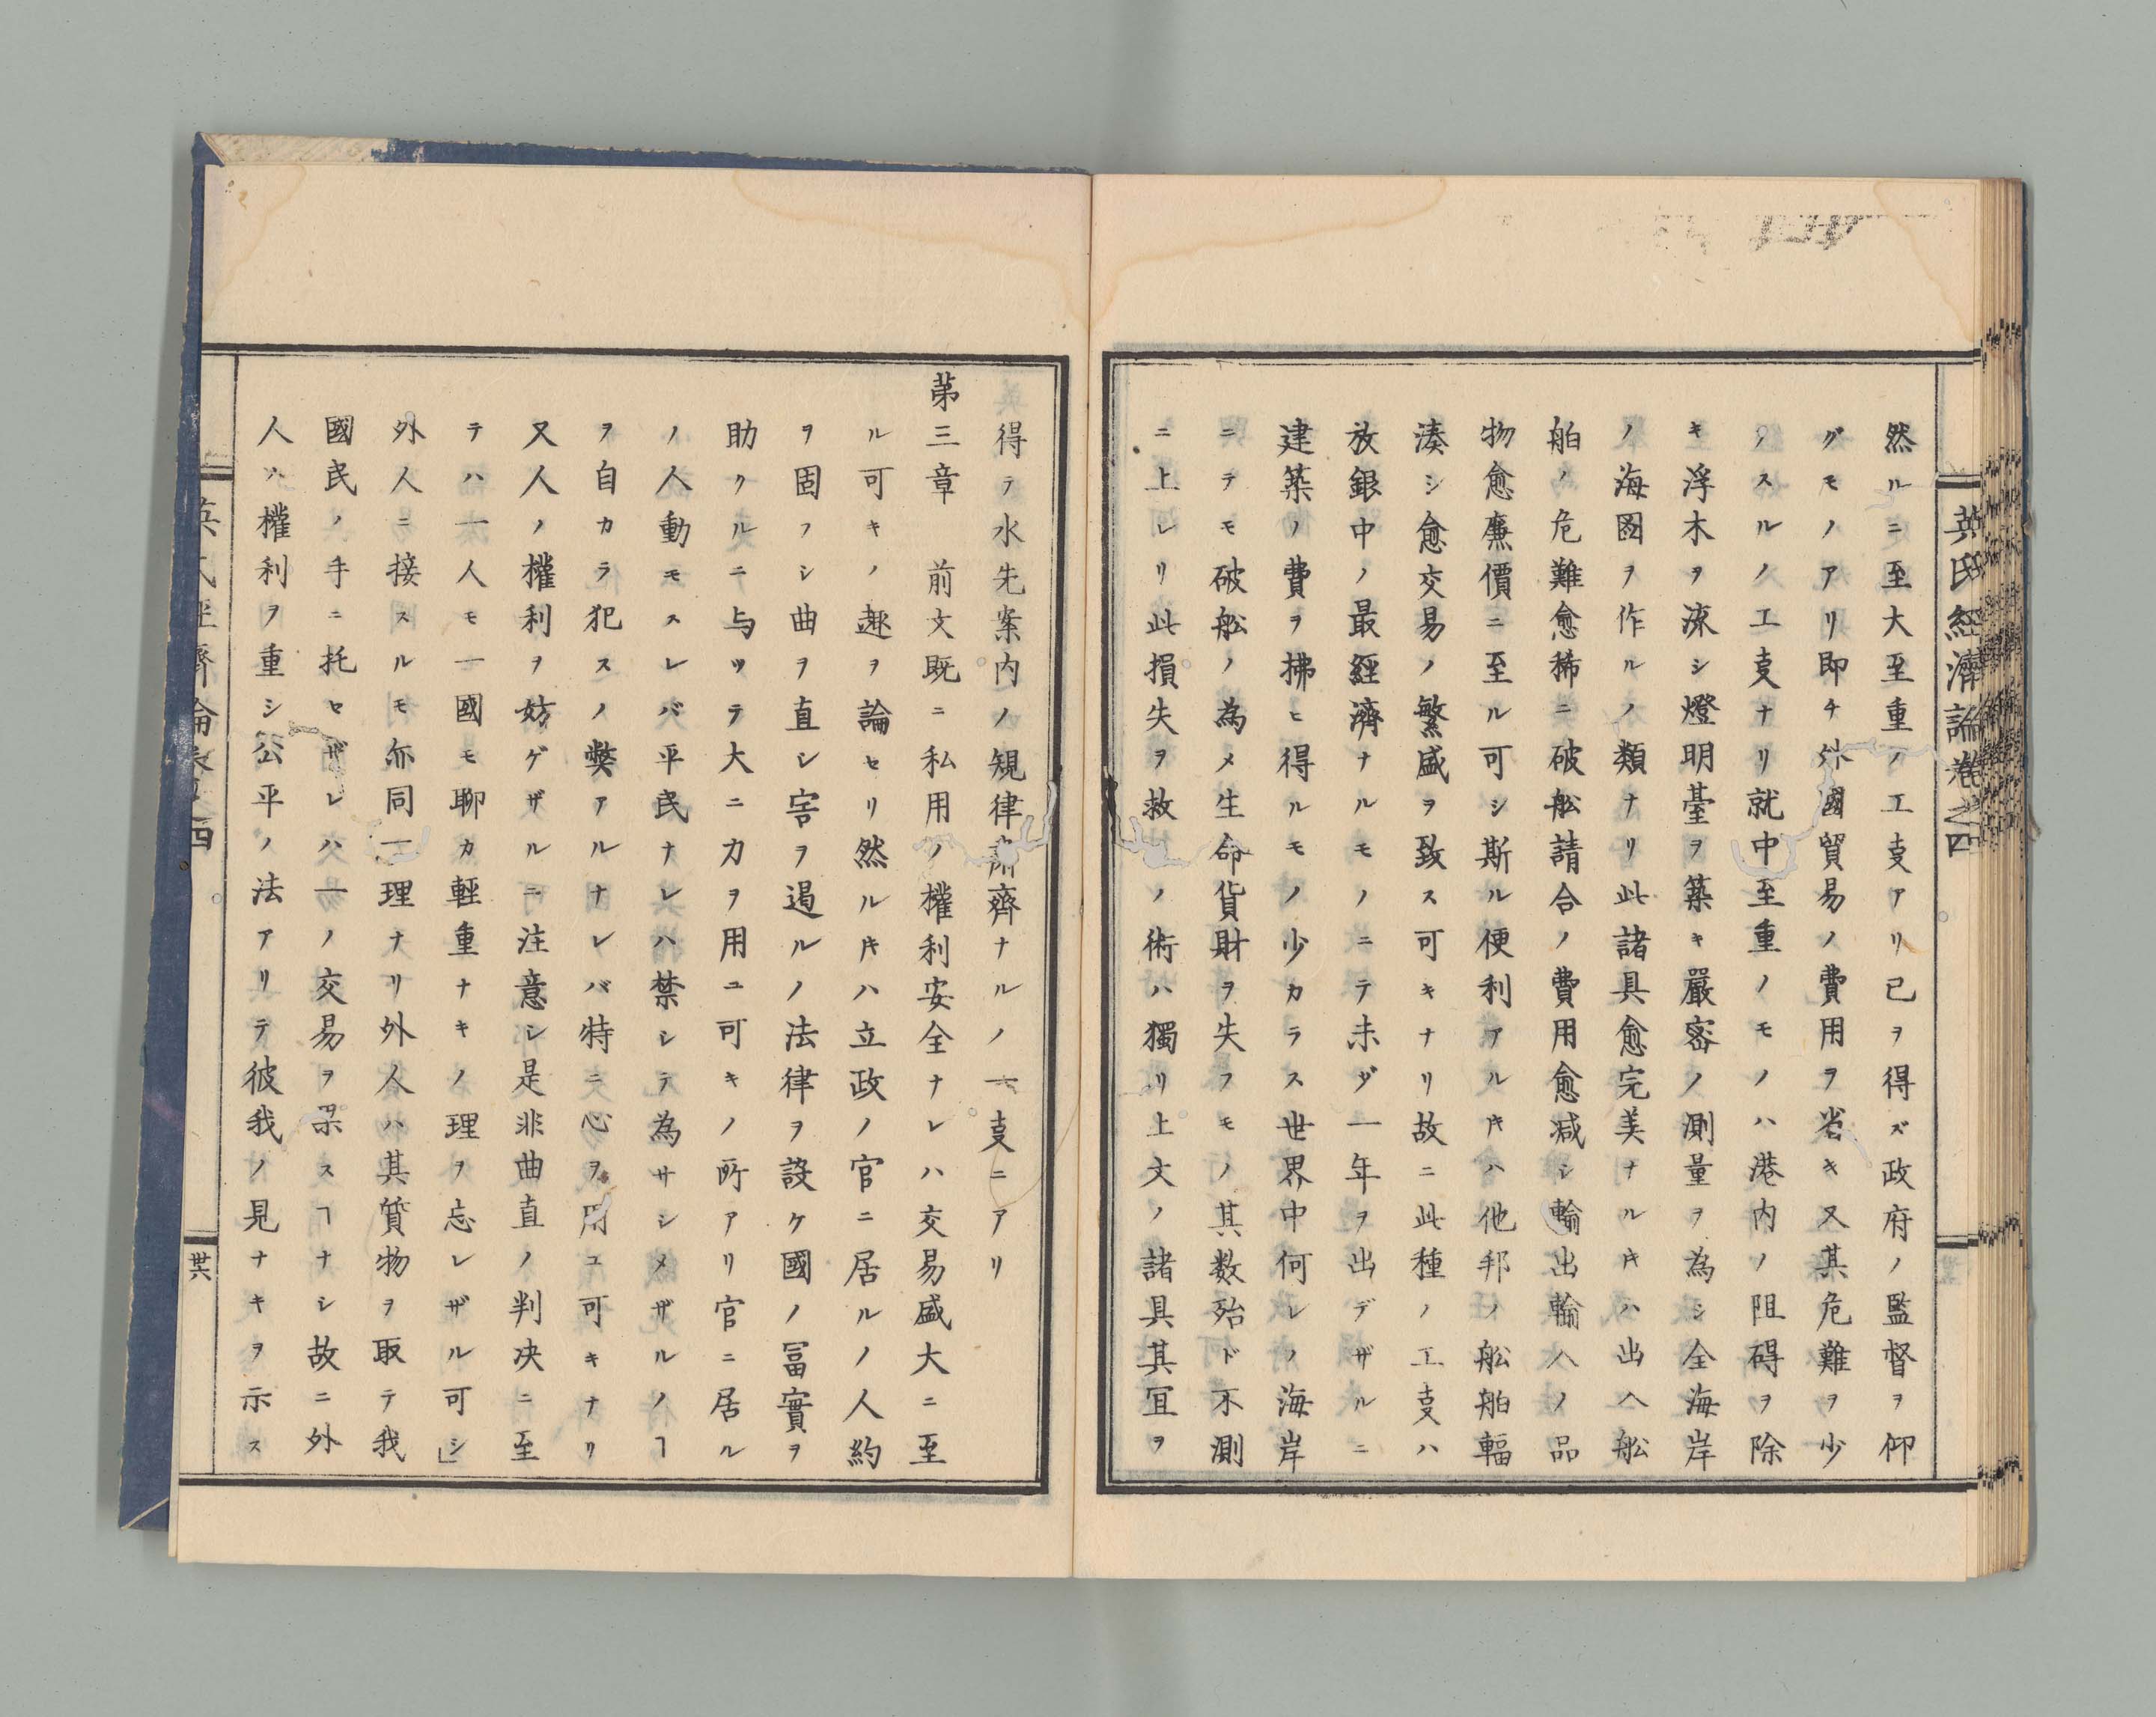 英氏經濟論卷之四
然ルニ至大至重ノ工叓アリ已ヲ得ズ政府ノ監督ヲ仰
グモノアリ即チ外國貿易ノ費用ヲ省キ又其危難ヲ少
フスルノ工叓ナリ就中至重ノモノハ港内ノ阻碍ヲ除
キ浮木ヲ流シ燈明臺ヲ築キ嚴密ノ測量ヲ為シ全海岸
ノ海図ヲ作ルノ類ナリ此諸具愈完美ナルキハ出入舩
舶ノ危難愈稀ニ破舩請合ノ費用愈减シ輸出輸入ノ品
物愈廉價ニ至ル可シ斯ル便利アルキハ他邦ノ舩舶輻
湊シ愈交易ノ繁盛ヲ致ス可キナリ故ニ此種ノ工叓ハ
放銀中ノ最經濟ナルモノニテ未ダ一年ヲ出デザルニ
建築ノ費ヲ拂ヒ得ルモノ少カラス世界中何レノ海岸
ニテモ破舩ノ為メ生命貨財ヲ失フモノ其数殆ド不測
ニ上レリ此損失ヲ救フノ術ハ獨リ上文ノ諸具其宜ヲ
得テ水先案内ノ規律齊ナルノ一叓ニアリ
第三章　前文既ニ私用ノ權利安全ナレハ交易盛大ニ至
ル可キノ趣ヲ論セリ然ルキハ立政ノ官ニ居ルノ人約
ヲ固フシ曲ヲ直シ害ヲ遏ルノ法律ヲ設ケ國ノ冨實ヲ
助クルニ与ツテ大ニ力ヲ用ユ可キノ所アリ官ニ居ル
ノ人動モスレバ平民ナレハ禁シテ為サシメザルノヿ
ヲ自カラ犯スノ弊アルナレバ特ニ心ヲ用ユ可キナリ
又人ノ權利ヲ妨ゲザルニ注意シ是非曲直ノ判决ニ至
テハ一人モ一國モ聊カ輕重ナキノ理ヲ忘レザル可シ」
外人ニ接スルモ亦同一理ナリ外人ハ其貨物ヲ取テ我
國民ノ手ニ托セザレハ一ノ交易ヲ果スヿナシ故ニ外
人ハ權利ヲ重シ公平ノ法アリテ彼我ノ見ナキヲ示ス
卄六